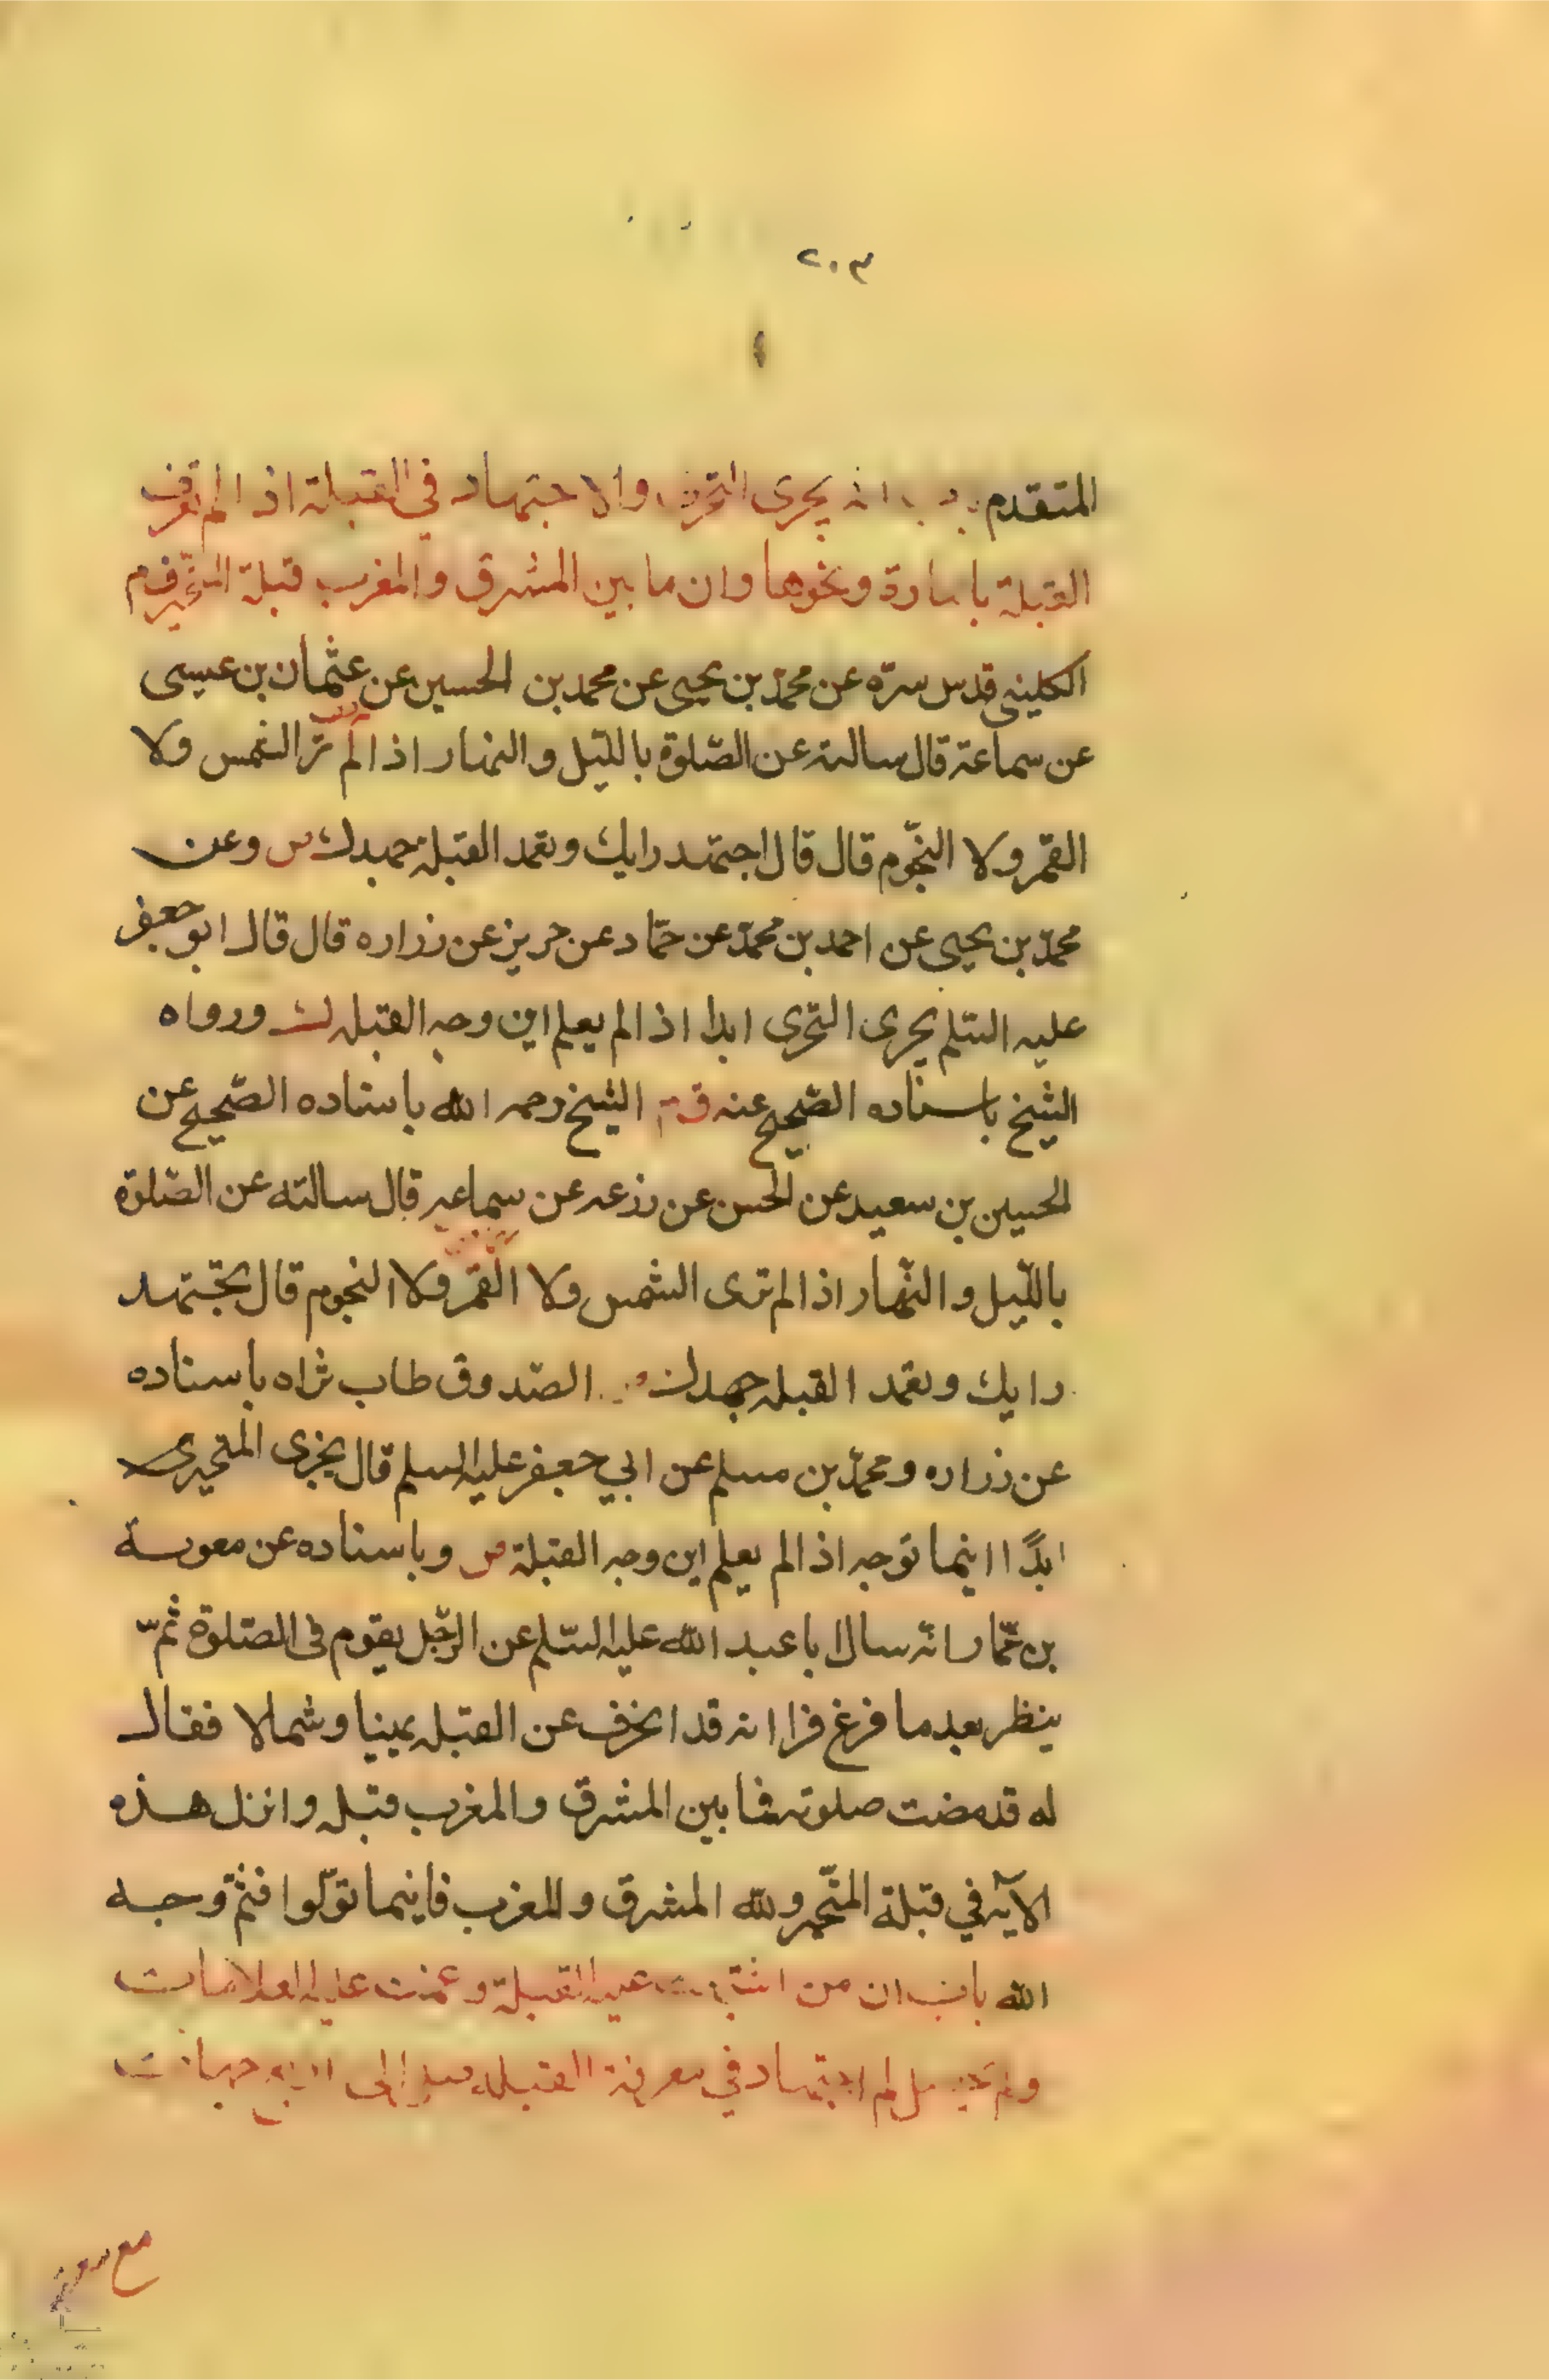 ٢٠٣
المتقدم باب انه يجزى التحرى والاجتهاد في القبلة اذا لم تعرف
القبلة بامارة ونحوها وان ما بين المشرق والمغرب قبلة المتحير
الكليني قدس سرّه عن محمّد بن يحيى عن محمد بن الحسين عن عثمان بن عيسى
عن سماعة قال سالته عن الصّلوة بالليّل والنهار اذا لم تر الشمس ولا
القمر ولا النجّوم قال قال اجتهد رايك وتعمد القبلة جهدك وعن
محمّد بن يحيى عن احمد بن محمّد عن حمّاد عن حريز عن زراره قال قال ابو جعفر
عليه السّلم يجزى التحرى ابدا اذا لم يعلم اين وجه القبله ورواه
الشيخ باسناده الصّحيح عنه الشيخ رحمه الله باسناده الصّحيح عن
الحسين بن سعيد عن الحسن عن زرعه عن سماعه قال سالته عن الصّلوة
بالليّل والنهّار اذا لم ترى الشمس ولا القمر ولا النجوم قال تجتهد
رايك وتعمد القبله جهدك الصّدوق طاب ثراه باسناده
عن زراره ومحمّد بن مسلم عن ابي جعفر عليه السلم قال يجزى المتحيرى
ابدًا اينما توجه اذا لم يعلم اين وجه القبلة وباسناده عن معوية
بن عمّار انه سال ابا عبد الله عليه السّلم عن الرّجل يقوم فى الصّلوة ثمّ
ينظر بعد ما فرغ فراا نه قد انحرف عن القبله يمينا وشملا فقال
له قد مضت صلوته فما بين المشرق والمغرب قبله وانزل هذه
الآيه في قبلة المتحّير ولله المشرق والمغرب فاينما تولّوا فثمّ وجه
الله باب ان من عليه القبلة وعميت عليه العلامات
ولم له الاجتهاد في معرفة القبله الى اربع جهات